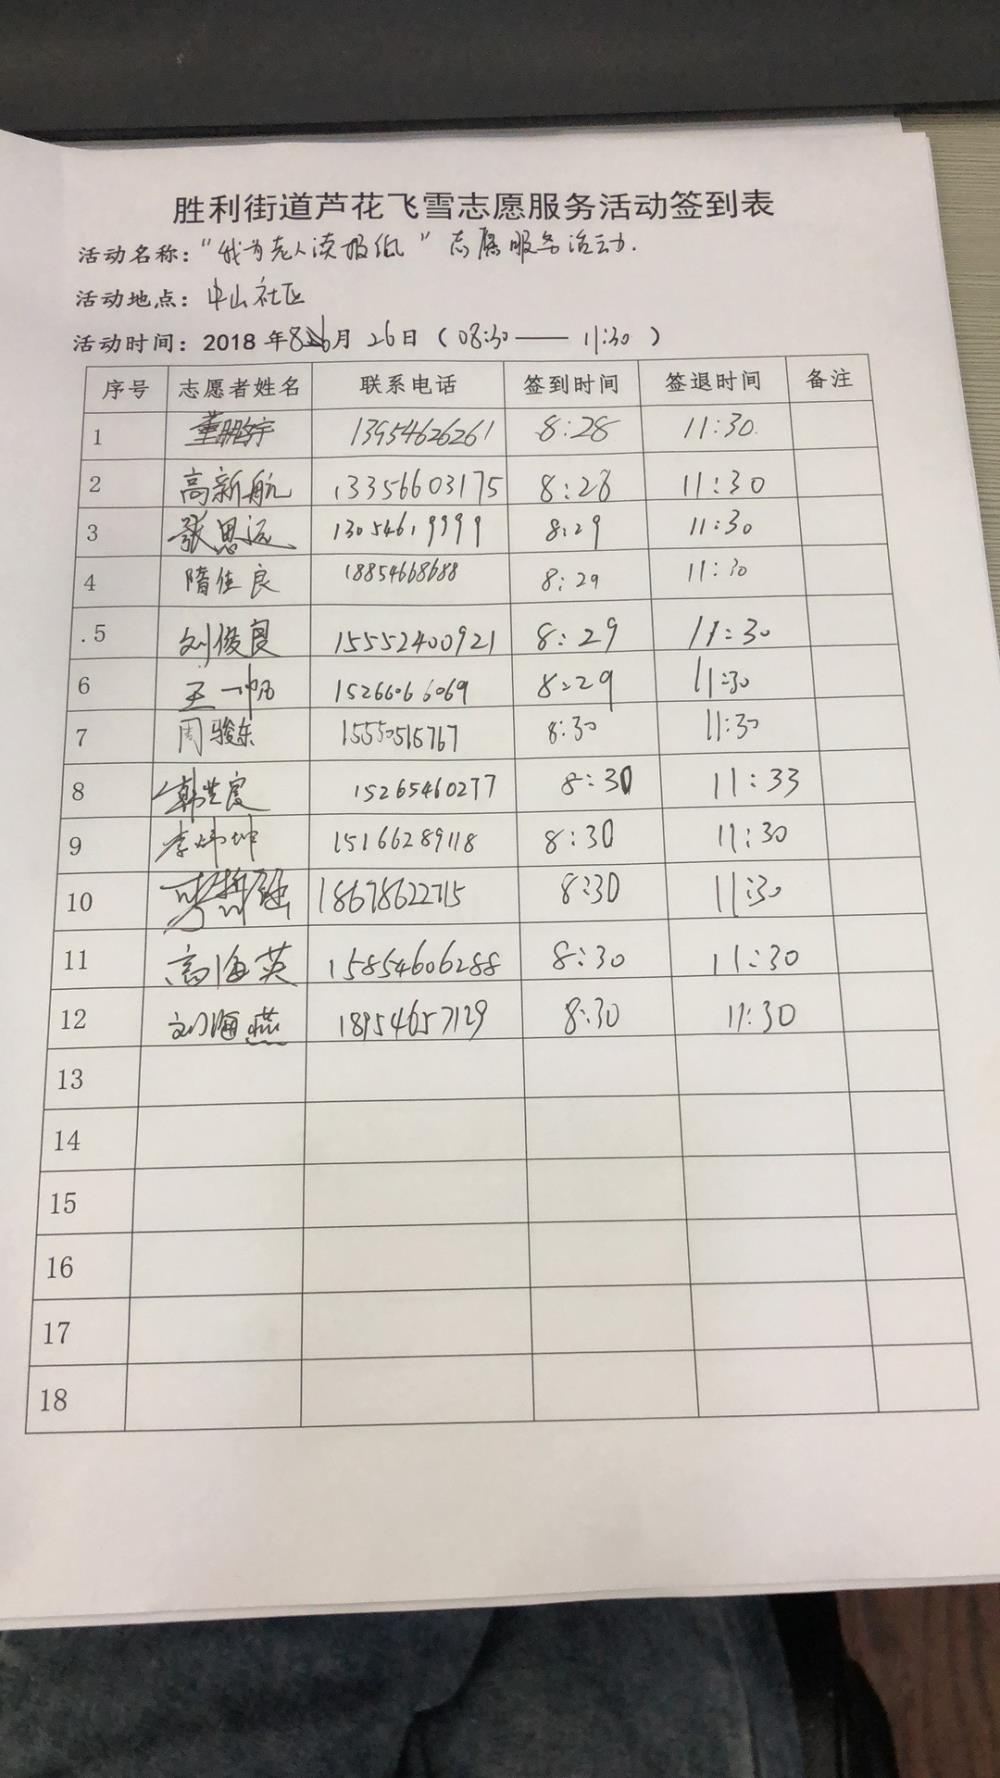 胜利街道芦花飞雪志愿服务活动签到表
活动名称：“我为老人读报纸”志愿服务活动.
活动地点：中山社区
活动时间：2018年8月26日（08:30——11:30）
序号 志愿者姓名 联系电话 签到时间 签退时间 备注
1 董鹏宇 13954626261 8:28 11:30
2 高新航 13356603175 8:28 11:30
3 张思远 13054619999 8:29 11:30
4 隋佳良 18854668688 8:29 11:30
5 刘俊良 15552400921 8:29 11:30
6 王一帆 15266066069 8:29 11:30
7 周骏东 15550515767 8:30 11:30
8 15265460277 8:30 11:33
9 李炜坤 15166289118 8:30 11:30
10 18678622715 8:30 11:30
11 高海英 15854606288 8:30 11:30
12 刘海燕 18954657129 8:30 11:30
13
14
15
16
17
18